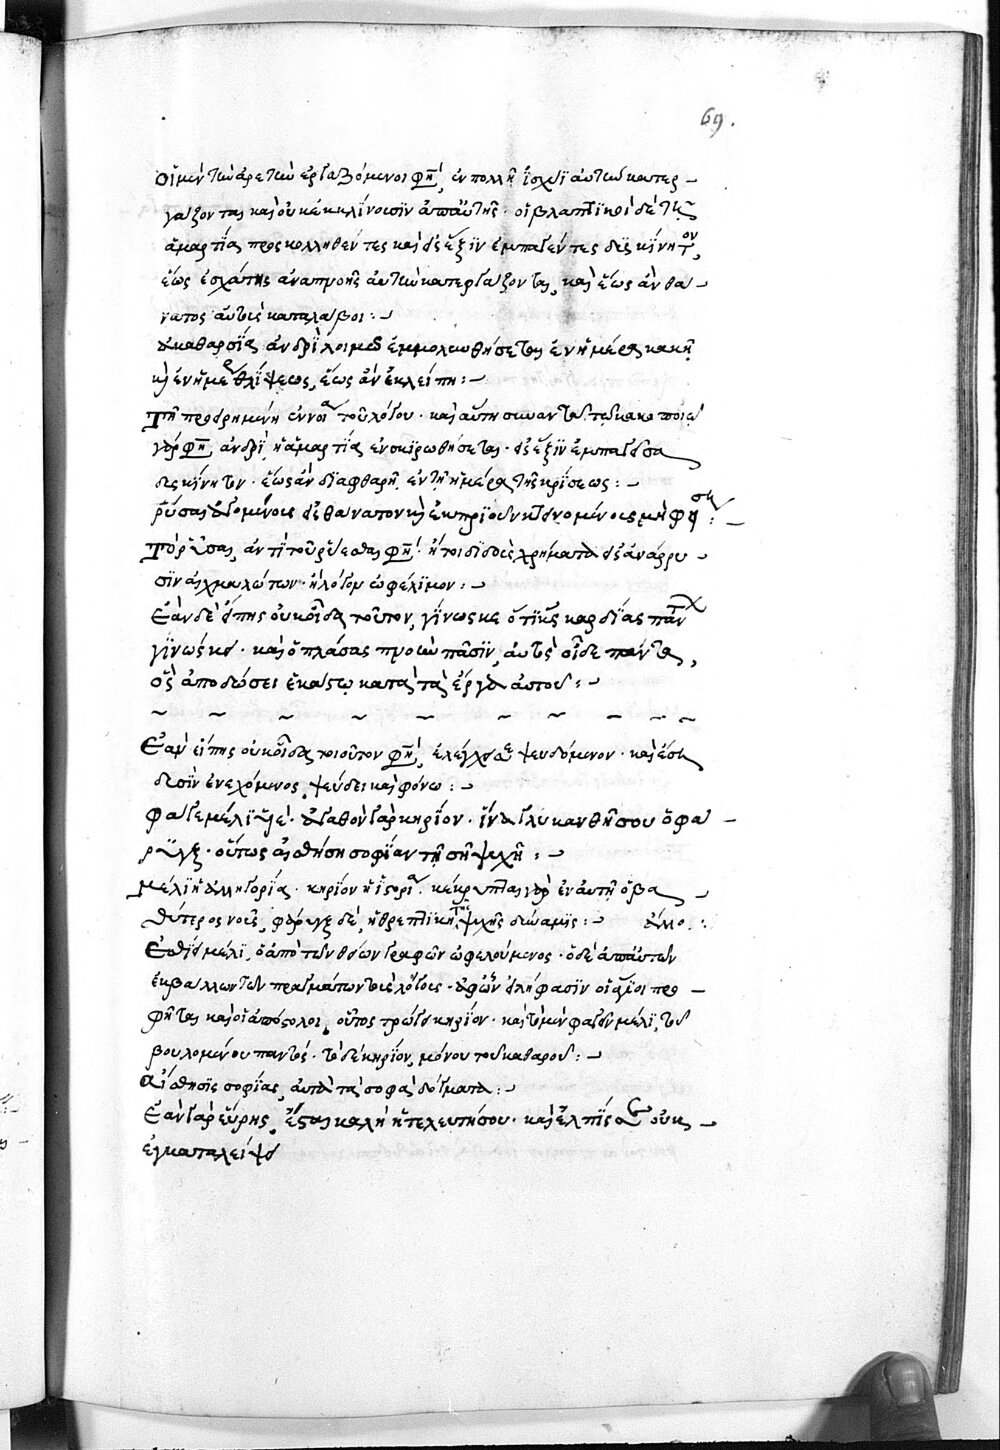 69.
οἱ μὲν τὴν ἀρετὴν ἐργαζόμενοι φησὶ, ἐν πολλῇ ἰσχύϊ αὐτὴν κατερ-
γάζονται καὶ οὐκ ἐκκλίνουσιν ἀπ' αὐτῆς · οἱ βλαπτικοὶ δὲ τῇ
ἁμαρτίᾳ προσκολληθέντες καὶ εἰς ἕξιν ἐμπαγέντες δυσκίνητον,
ἕως ἐσχάτης ἀναπνοῆς αὐτὴν κατεργάζονται, καὶ ἕως ἂν θά-
νατος αὐτοὺς καταλάβοι :-
ἀκαθαρσία ἀνδρὶ λοιμῷ ἐμμολυνθήσεται ἐν ἡμέρᾳ κακῇ
καὶ ἐν ἡμέρᾳ θλίψεως, ἕως ἂν ἐκλείπῃ :-
Τῇ προειρημένῃ ἐννοίᾳ τοῦ λόγου · καὶ αὕτη συνᾴδει τῷ κακοποιῷ
γάρ φησιν ἀνδρὶ, ἡ ἁμαρτία ἐνσκιρωθήσεται · εἰς ἕξιν ἐμπαγεῖσα
δυσκίνητον · ἕως ἂν διαφθαρῇ, ἐν τῇ ἡμέρᾳ τῆς κρίσεως :-
ῥῦσαι ἀγομένους εἰς θάνατον καὶ ἐκπρίου κτεινομένους μὴ φείσῃ :-
Τὸ ῥῦσαι, ἀντὶ τοῦ ῥύεσθαι φησὶ · ἤτοι διδοὺς χρήματα εἰς ἀνάρρυ-
σιν αἰχμαλώτων · ἢ λόγον ὠφέλιμον :-
Ἐὰν δὲ εἴπῃς οὐκ οἶδα τοῦτον, γίνωσκε ὅτι κύριος καρδίας πάντων
γινώσκει · καὶ ὁ πλάσας πνοὴν πᾶσιν, αὐτὸς οἶδε πάντα,
ὃς ἀποδώσει ἑκάστῳ κατὰ τὰ ἔργα αὐτοῦ :-
Ἐὰν εἴπῃς οὐκ οἶδα τοιοῦτον φησὶ, ἐλέγχει σε ψευδόμενον · καὶ ἔσῃ
δυσὶν ἐνεχόμενος, ψεύδει καὶ φόνῳ :-
Φάγε μέλι υἱέ · ἀγαθὸν γὰρ κηρίον · ἵνα γλυκανθῇ σου ὁ φά-
ρυγξ · οὕτως αἰσθήσῃ σοφίαν τῇ σῇ ψυχῇ :-
Μέλι ἡ ἀλληγορία · κηρίον ἡ ἱστορία · κέκρυπται γὰρ ἐν αὐτῇ ὁ βα-
θύτερος νοῦς, φάρυγξ δὲ, ἡ θρεπτικὴ τῆς ψυχῆς δύναμις :-
Ἐσθίει μέλι, ὁ ἀπὸ τῶν θείων γραφῶν ὠφελούμενος · ὁ δὲ ἀπ' αὐτῶν
ἐκβάλλων τῶν πραγμάτων τοὺς λόγους · ἀφ' ὧν εἰλήφασιν οἱ ἅγιοι προ-
φῆται καὶ οἱ ἀπόστολοι, οὗτος τρώγει κηρίον · καὶ τὸ μὲν φαγεῖν μέλι, τοῦ
βουλομένου παντός · τὸ δὲ κηρίον, μόνου τοῦ καθαροῦ :-
Αἴσθησις σοφίας, αὐτὰ τὰ σοφὰ δόγματα :-
Ἐὰν γὰρ εὕρῃς, ἔσται καλὴ ἡ τελευτή σου · καὶ ἐλπίς σε οὐκ
ἐγκαταλείψει